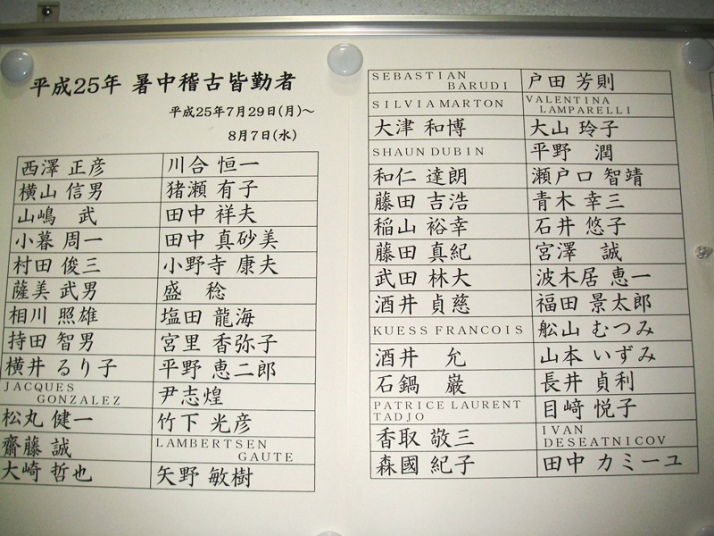 平成25年 暑中稽古皆勤者
平成25年7月29日(月)～
8月7日(水)
西澤 正彦 川合 恒一
横山 信男 猪瀬 有子
山嶋 武 田中 祥夫
小暮 周一 田中 真砂美
村田 俊三 小野寺 康夫
薩美 武男 盛 稔
相川 照雄 塩田 龍海
持田 智男 宮里 香弥子
横井 るり子 平野 恵二郎
JACQUES GONZALEZ 尹志煌
松丸 健一 竹下 光彦
齋藤 誠 LAMBERTSEN GAUTE
大崎 哲也 矢野 敏樹
SEBASTIAN BARUDI 戸田 芳則
SILVIA MARTON VALENTINA LAMPARELLI
大津 和博 大山 玲子
SHAUN DUBIN 平野 潤
和仁 達朗 瀬戸口 智靖
藤田 吉浩 青木 幸三
稲山 裕幸 石井 悠子
藤田 真紀 宮澤 誠
武田 林大 波木居 恵一
酒井 貞慈 福田 景太郎
KUESS FRANCOIS 舩山 むつみ
酒井 允 山本 いずみ
石鍋 巌 長井 貞利
PATRICE LAURENT TADJO 目﨑 悦子
香取 敬三 IVAN DESEATNICOV
森國 紀子 田中 カミーユ